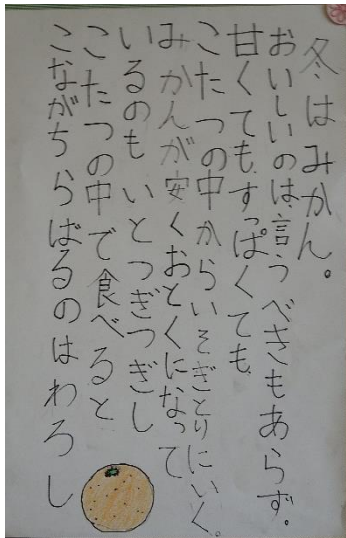 冬はみかん。
おいしいのは、言うべきもあらず。
甘くても、すっぱくても、
こたつの中からいそぎとりにいく。
みかんが安くおとくになって
いるのも いとつぎつぎし
こたつの中で食べると
こながちらばるのはわろし